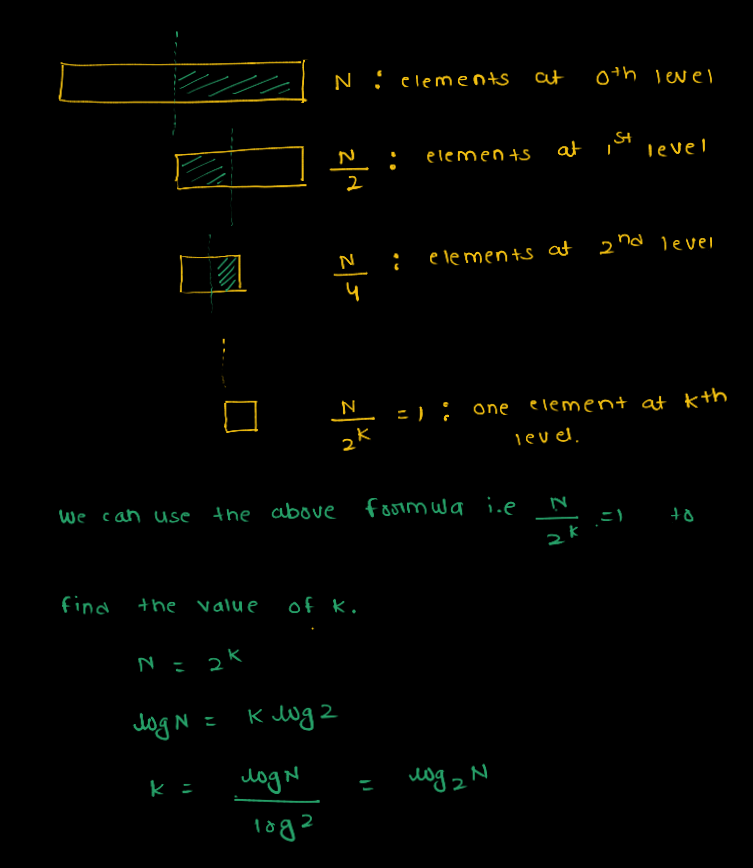 N : elements at 0th level
N/2 : elements at 1st level
N/4 : elements at 2nd level
N/2^k = 1 : one element at kth
level.
we can use the above formula i.e N/2^k = 1 to
find the value of k.
N = 2^k
log N = k log 2
k = log N / log 2 = log₂ N